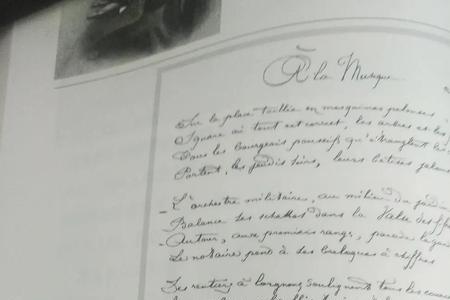 À la Musique
Sur la place taillée en mesquines pelouses
Square où tout est correct, les arbres et les
Tous les bourgeois poussifs qu'étranglent les
Portent, les jeudis soirs, leurs bêtises jalous
– L'orchestre militaire, au milieu du jardin
Balance ses schakos dans la Valse des fifres
– Autour, aux premiers rangs, parade le
Le notaire pend à ses breloques à chiffres
Des rentiers à lorgnons soulignent tous les couacs